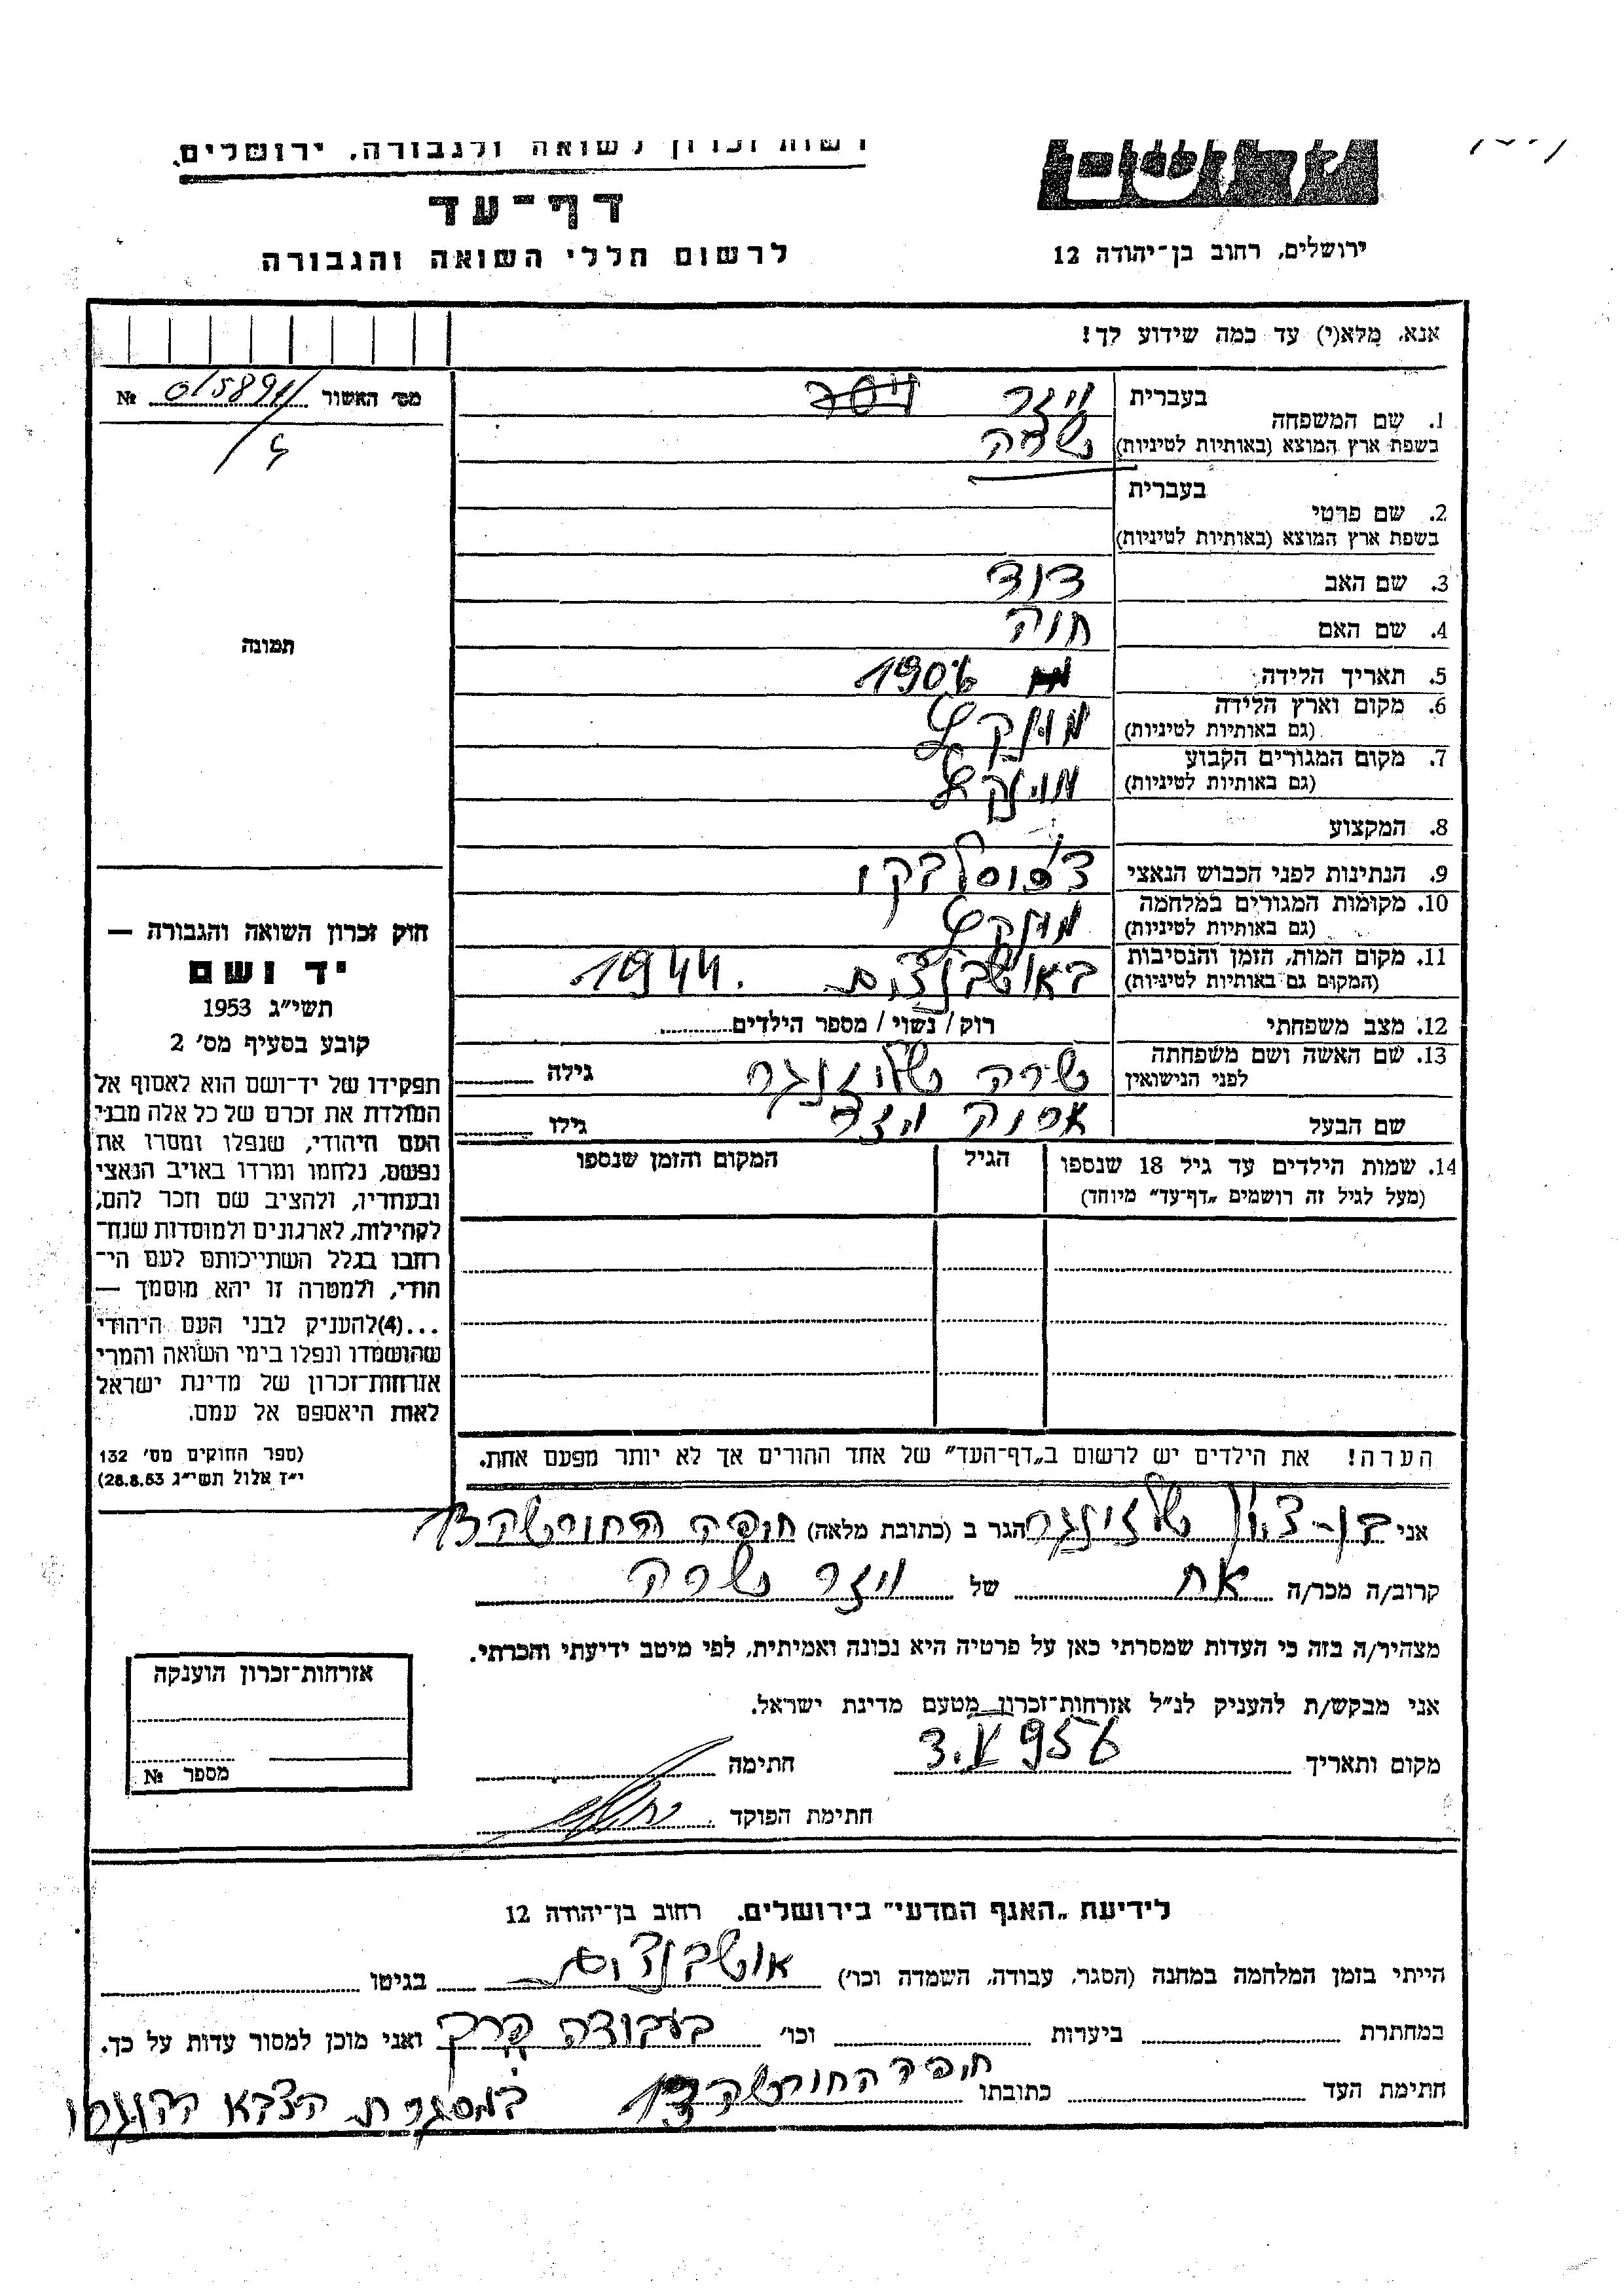 רשות זכרון לשואה ולגבורה, ירושלים.
דף־עד
לרשום חללי השואה והגבורה
ירושלים, רחוב בן־יהודה 12
אנא, מלא(י) עד כמה שידוע לך!
מס׳ האשור № 015891/
בעברית ויזר
1. שם המשפחה
בשפת ארץ המוצא (באותיות לטיניות) שרה
בעברית
2. שם פרטי
בשפת ארץ המוצא (באותיות לטיניות)
3. שם האב דוד
4. שם האם חוה
תמונה
5. תאריך הלידה 1906
6. מקום וארץ הלידה מונקץ
(גם באותיות לטיניות)
7. מקום המגורים הקבוע מונקץ
(גם באותיות לטיניות)
8. המקצוע
9. הנתינות לפני הכבוש הנאצי
10. מקומות המגורים במלחמה מונקץ
(גם באותיות לטיניות)
11. מקום המות, הזמן והנסיבות 1944.
(המקום גם באותיות לטיניות)
12. מצב משפחתי רוק / נשוי / מספר הילדים
13. שם האשה ושם משפחתה שרה שלזינגר גילה
לפני הנישואין
שם הבעל ויזר גילו
14. שמות הילדים עד גיל 18 שנספו הגיל המקום והזמן שנספו
(מעל לגיל זה רושמים „דף־עד״ מיוחד)
חוק זכרון השואה והגבורה —
יד ושם
תשי״ג 1953
קובע בסעיף מס׳ 2
תפקידו של יד־ושם הוא לאסוף אל
המולדת את זכרם של כל אלה מבני
העם היהודי, שנפלו ומסרו את
נפשם, נלחמו ומרדו באויב הנאצי
ובעוזריו, ולהציב שם וזכר להם,
לקהילות, לארגונים ולמוסדות שנח־
רבו בגלל השתייכותם לעם הי־
הודי, ולמטרה זו יהא מוסמך —
...(4)להעניק לבני העם היהודי
שהושמדו ונפלו בימי השואה והמרי
אזרחות־זכרון של מדינת ישראל
לאות היאספם אל עמם.
(ספר החוקים מס׳ 132
י״ז אלול תשי״ג 28.8.53)
הערה! את הילדים יש לרשום ב„דף־העד״ של אחד ההורים אך לא יותר מפעם אחת.
אני בן-ציון שלזינגר הגר ב (כתובת מלאה) חיפה החורשה 13
קרוב/ה מכר/ה אח של ויזר שרה
מצהיר/ה בזה כי העדות שמסרתי כאן על פרטיה היא נכונה ואמיתית, לפי מיטב ידיעתי והכרתי.
אני מבקש/ת להעניק לנ״ל אזרחות־זכרון מטעם מדינת ישראל.
מקום ותאריך 3.V 956 חתימה
חתימת הפוקד
אזרחות־זכרון הוענקה
מספר №
לידיעת „האגף המדעי״ בירושלים, רחוב בן־יהודה 12
הייתי בזמן המלחמה במחנה (הסגר, עבודה, השמדה וכו׳) בגיטו
במחתרת ביערות וכו׳ בעבודה ואני מוכן למסור עדות על כך.
חתימת העד כתובתו חיפה החורשה 13
במסגרת הצבא ההונגרי